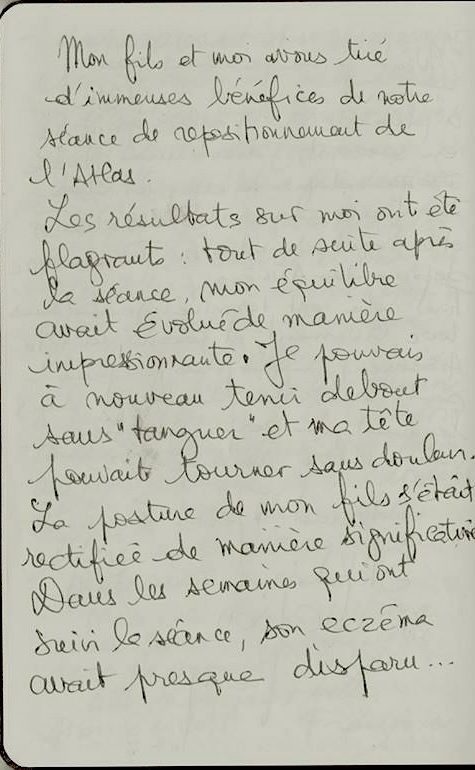 Mon fils et moi avons tiré
d'immenses bénéfices de notre
séance de repositionnement de
l'Atlas.
Les résultats sur moi ont été
flagrants : tout de suite après
la séance, mon équilibre
avait évolué de manière
impressionnante. Je pouvais
à nouveau tenir debout
sans "tanguer" et ma tête
pouvait tourner sans douleur.
La posture de mon fils s'était
rectifiée de manière significative
Dans les semaines qui ont
suivi la séance, son eczéma
avait presque disparu...